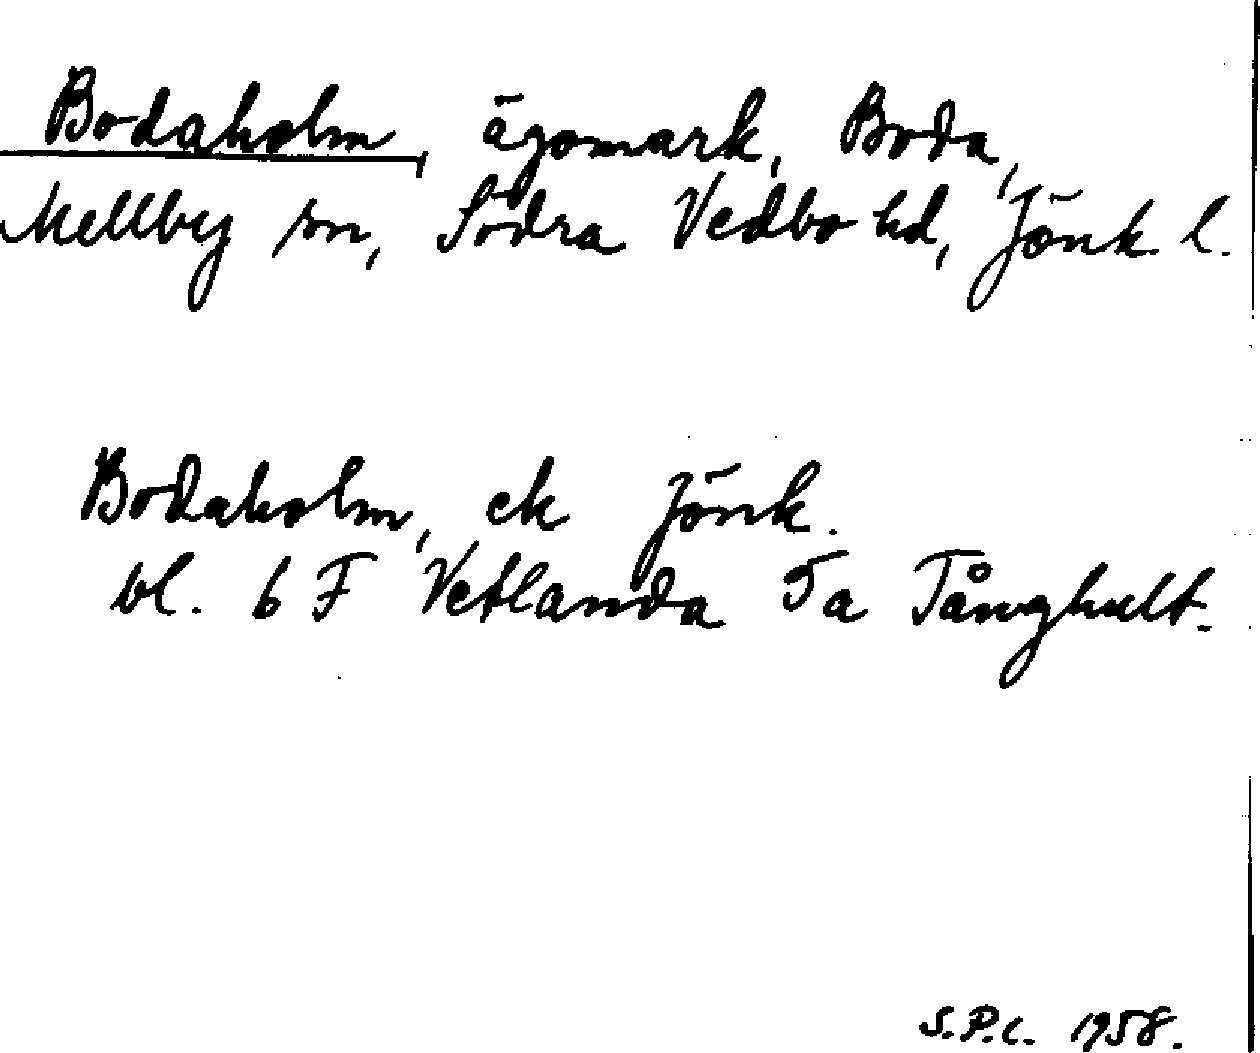 Bodaholm, ägomark, Boda,
Mellby sn, Södra Vedbo hd, Jönk. l.
Bodaholm, ek Jönk.
bl. 6 F Vetlanda 5a Tånghult.
S.P.C. 1958.